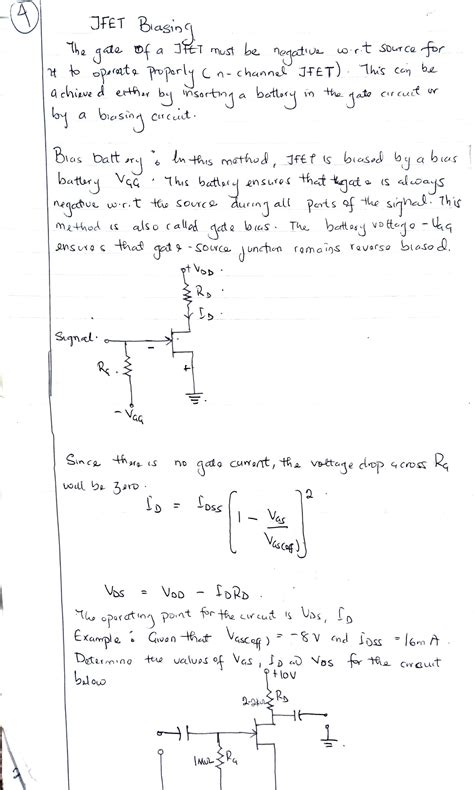 4
JFET Biasing
The gate of a JFET must be negative w.r.t source for
it to operate properly (n-channel JFET). This can be
achieved either by inserting a battery in the gate circuit or
by a biasing circuit.
Bias battery: In this method, JFET is biased by a bias
battery VGG. This battery ensures that gate is always
negative w.r.t the source during all parts of the signal. This
method is also called gate bias. The battery voltage -VGG
ensures that gate-source junction remains reverse biased.
+VDD.
RD.
ID.
Signal.
-
RG.
+
-VGG
Since there is no gate current, the voltage drop across RG
will be zero.
ID = IDSS [1 - VGS / VGS(off)]²
VDS = VDD - IDRD.
The operating point for the circuit is VDS, ID
Example: Given that VGS(off) = -8V and IDSS = 16mA.
Determine the values of VGS, ID and VDS for the circuit
below
+10V
2.2kΩ RD
1MΩ RG